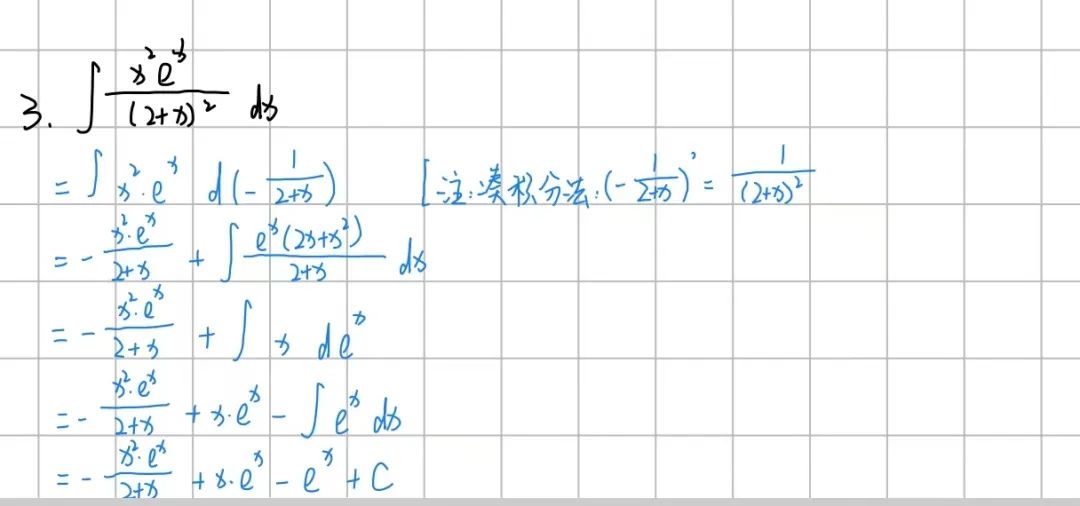 3. ∫ x²eˣ/(2+x)² dx
= ∫ x²·eˣ d(-1/(2+x)) [注:凑积分法:(-1/(2+x))' = 1/(2+x)²
= - x²·eˣ/(2+x) + ∫ eˣ(2x+x²)/(2+x) dx
= - x²·eˣ/(2+x) + ∫ x deˣ
= - x²·eˣ/(2+x) + x·eˣ - ∫ eˣ dx
= - x²·eˣ/(2+x) + x·eˣ - eˣ + C